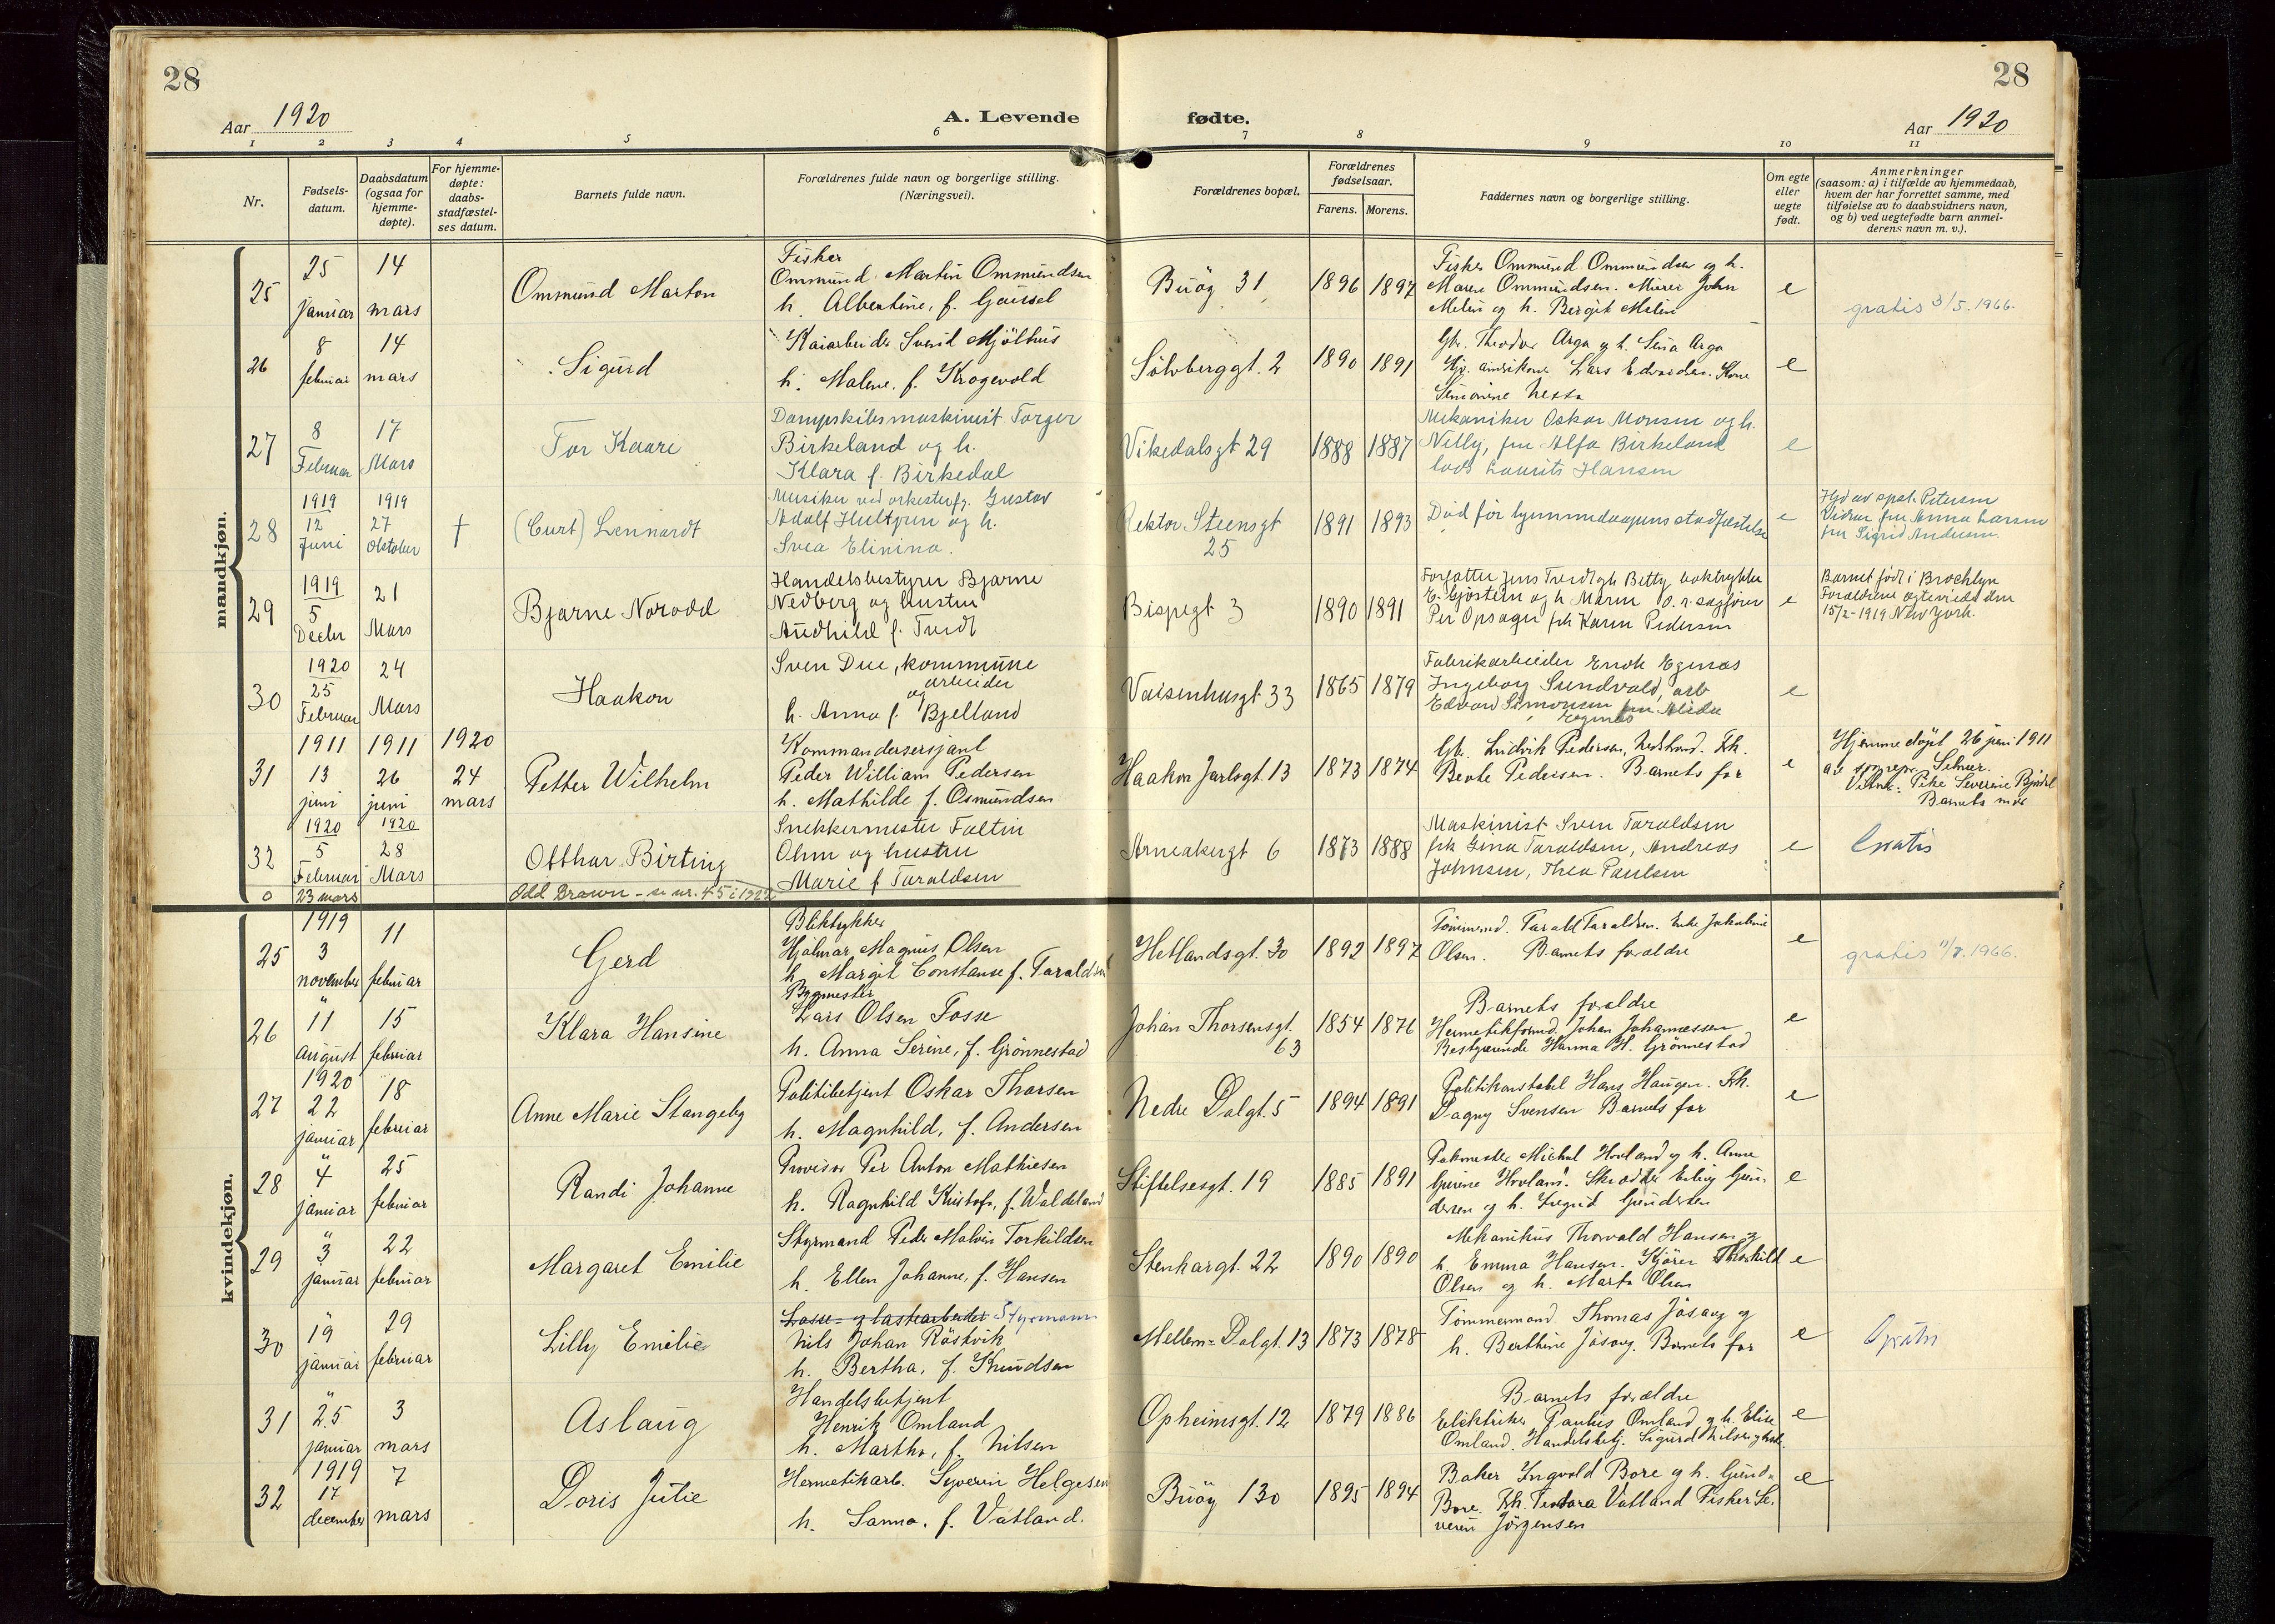 28
28
Aar 1920
A. Levende fødte.
Aar 1920
1 2 3 4 5 6 7 8 9 10 11
Nr.
Fødsels-
datum.
Daabsdatum
(ogsaa for
hjemme-
døpte).
For hjemme-
døpte:
daabs-
stadfæstel-
ses datum.
Barnets fulde navn.
Forældrenes fulde navn og borgerlige stilling.
(Næringsvei).
Forældrenes bopæl.
Forældrenes
fødselsaar.
Farens. Morens.
Faddernes navn og borgerlige stilling.
Om egte
eller
uegte
født.
Anmerkninger
(saasom: a) i tilfælde av hjemmedaab,
hvem der har forrettet samme, med
tilføielse av to daabsvidners navn,
og b) ved uegtefødte barn anmel-
derens navn m. v.).
mandkjøn.
25
25
januar
14
mars
Ommund Marton
Fisker
Ommund Martin Ommundsen
h. Albertine, f. Gaussel
Buöy 31
1896 1897
Fisker Ommund Ommundsen og h.
Maren Ommundsen. Murer John
Melin og h. Bergit Melin
e
gratis 3/5.1966.
26
8
februar
14
mars
Sigurd
Kaiarbeider Svend Mjölhus
h. Malene. f. Krogevold
Sölvberggt. 2
1890 1891
Gbr. Theodor Arga og h. Sina Arga
Lars Edvardsen. Kone
e
27
8
Februar
17
Mars
Tor Kaare
Dampskibsmaskinist Torger
Birkeland og h.
Klara f. Birkedal
Vikedalsgt 29
1888 1887
Mekaniker Oskar Monsen og h.
Nelly, fru Alfa Birkeland
lods Laurits Hansen
e
28
1919
12
Juni
1919
27
Oktober
†
(Curt) Lennardt
Musiker ved orkesterfg. Gustav
Adolf Hultgren og h.
Svea Elinina.
Rektor Steensgt
25
1891 1893
Död för hjemmedaapens stadfæstelse
e
Hjd av spst. Petersen
Vidner fru Anna Larsen
fru Sigrid Andersen.
29
1919
5
Decbr
21
Mars
Bjarne Norodd
Handelsbestyrer Bjarne
Nedberg og hustru
Audhild f. Tvedt
Bispegt 3
1890 1891
Forfatter Jens Tvedt og h Betty boktrykker
E. Gjöstein og h Maren o.r. sagförer
Per Opsager frk Karen Pedersen
e
Barnet födt i Brooklyn
Foraldrene egteviede den
15/2-1919 New York.
30
1920
25
Februar
24
Mars
Haakon
Sven Due, kommune
arbeider
og
h. Anna f. Bjelland
Vaisenhusgt 33
1865 1879
Fabrikarbeider Enok Egenes
Ingeborg Sundvold, arb
Edvard Simonsen fru Alida
Egenes
e
31
1911
13
juni
1911
26
juni
1920
24
mars
Petter Wilhelm
Kommandersersjant
Peder William Pedersen
h. Mathilde f. Osmundsen
Haakon Jarlsgt 13
1873 1874
Gbr. Ludvik Pedersen, Nedstrand. Frk.
Beate Pedersen. Barnets far
e
Hjemmedöpt 26 juni 1911
av sogepr. Selmer.
Vitne: Pike Severine
Barnets mor
32
1920
5
Februar
1920
28
Mars
Otthar Birting
Snekkermester Faltin
Ohm og hustru
Marie f Taraldsen
Arneakergt 6
1873 1888
Maskinist Sven Taraldsen
frk Gina Taraldsen, Andreas
Johnsen, Thea Paulsen
e
Gratis
0
23 mars
Odd Brawn - se nr. 45 i 1922
kvindekjøn.
25
1919
3
november
11
februar
Gerd
Bliktrykker
Hjalmar Magnus Olsen
h. Margit Constanse f. Taraldsen
Hetlandsgt. 30
1892 1897
Tömmermd. Tarald Taraldsen. Enke Jakobine
Olsen. Barnets foraldre
e
gratis 11/7.1966.
26
"
11
august
15
februar
Klara Hansine
Bygmester
Lars Olsen Fosse
h. Anna Serine, f. Grönnestad
Johan Thorsensgt.
63
1854 1876
Barnets foraldre
Hermetikformd. Johan Johannessen
Bestyrerinde Hanna H. Grönnestad
e
27
1920
22
januar
18
februar
Anne Marie Stangeby
Politibetjent Oskar Thorsen
h. Magnhild, f. Andersen
Nedre Dalgt. 5
1894 1891
Politikonstabel Hans Haugen. Frk.
Dagny Svensen Barnets far
e
28
"
4
januar
25
februar
Randi Johanne
Provisor Per Anton Mathiesen
h. Ragnhild Kristofa, f. Waldeland
Stiftelsesgt. 19
1885 1891
Pakmester Michal Hovland og h. Anne
Gurine Hovland. Skrædder Erling Gun-
dersen og h. Ingrid Gundersen
e
29
"
3
januar
22
februar
Margaret Emilie
Styrmand Peder Malvin Torkildsen
h. Ellen Johanne, f. Hansen
Stenkargt. 22
1890 1890
Mekanikus Thorvald Hansen og
h. Emma Hansen. Kjörer Thorkild
Olsen og h. Marta Olsen
e
30
"
19
januar
29
februar
Lilly Emilie
Losse- og lastearbeider Styrmann
Nils Johan Röskvik
h. Bertha, f. Knudsen
Mellem=Dalgt. 13
1873 1878
Tömmermand Thomas Jösang og
h. Berthine Jösang. Barnets far
e
Gratis
31
"
25
januar
3
mars
Aslaug
Handelsbetjent
Henrik Omland
h. Martha, f. Nilsen
Opheimsgt. 12
1879 1886
Barnets forældre
Elektriker Paulus Omland og h. Elise
Omland. Handelsbetj. Sigurd Nilsen
e
32
1919
17
december
7
mars
Doris Jutie
Hermetikarb. Syverin Helgesen
h. Sanna. f. Vatland.
Buöy 130
1895 1894
Baker Ingvald Bore og h. Gunda
Bore. Frk. Teodora Vatland Fisker Se.
verin Jörgensen
e